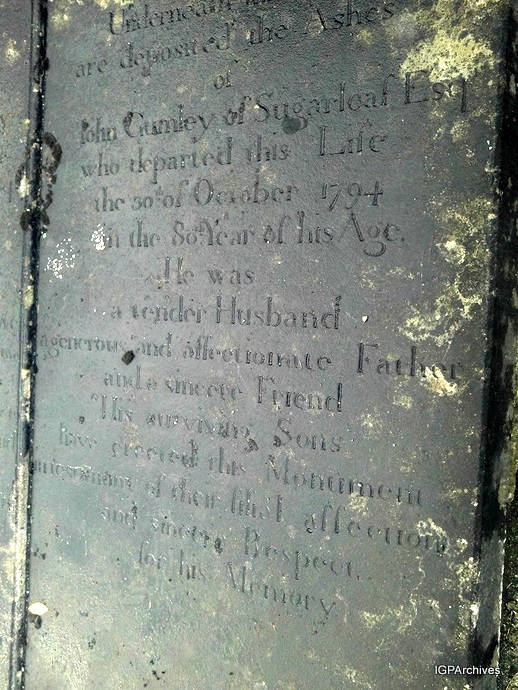 Underneath
are deposited the Ashes
of
John Gumley of Sugarloaf Esq
who departed this Life
the 30th of October 1794
in the 80th Year of his Age.
He was
a tender Husband
a generous and affectionate Father
and a sincere Friend
His surviving Sons
have erected this Monument
of their filial affection
and sincere Respect
for his Memory
IGPArchives